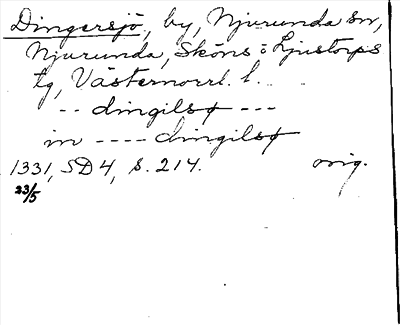 Dingersjö, by, Njurunda sn,
Njurunda, Sköns o Ljustorps
tg, Västernorrl. l.
-- dingilsø ---
in ---- dingilsø
1331, SD4, s. 214. orig.
23/5